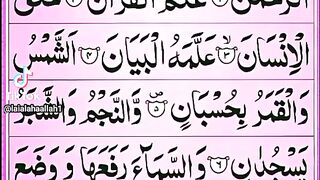 الرَّحْمٰنُ ۙ عَلَّمَ الْقُرْاٰنَ ؕ خَلَقَ
الْاِنْسَانَ ۙ﴿۳﴾ عَلَّمَهُ الْبَيَانَ ﴿۴﴾ اَلشَّمْسُ
وَالْقَمَرُ بِحُسْبَانٍ ﴿۵﴾ وَّالنَّجْمُ وَالشَّجَرُ
يَسْجُدٰنِ ﴿۶﴾ وَالسَّمَآءَ رَفَعَهَا وَوَضَعَ
@lailahaallah1